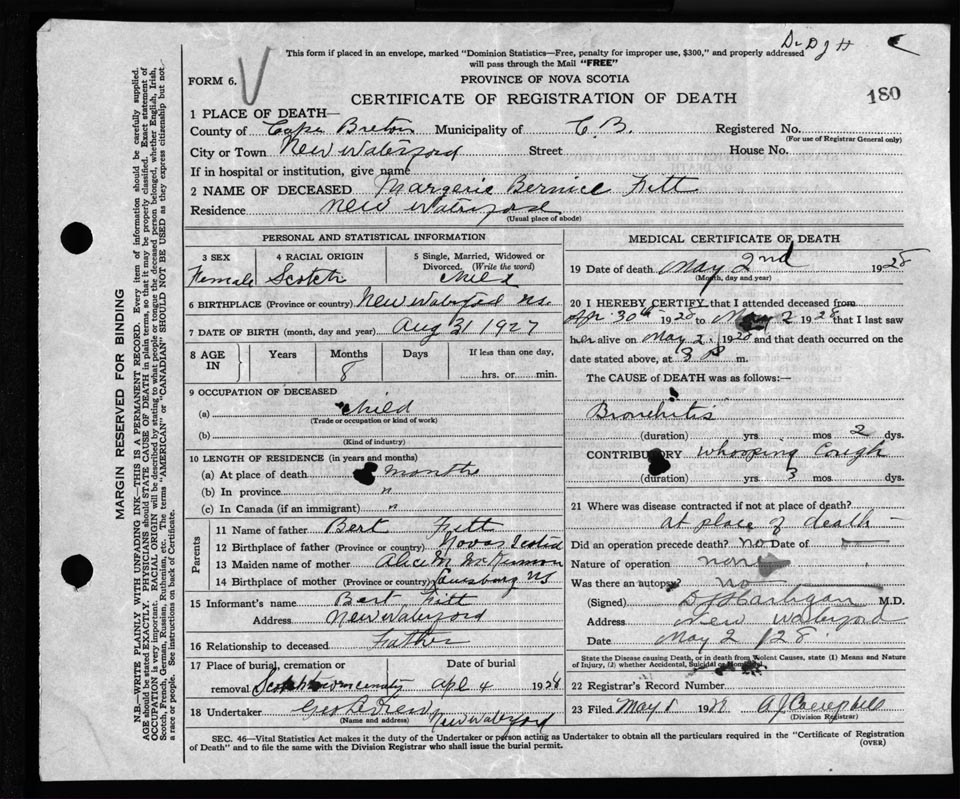 Dr D J H
This form if placed in an envelope, marked "Dominion Statistics—Free, penalty for improper use, $300," and properly addressed
will pass through the Mail "FREE"
FORM 6.
PROVINCE OF NOVA SCOTIA
CERTIFICATE OF REGISTRATION OF DEATH
180
1 PLACE OF DEATH—
County of Cape Breton Municipality of C. B. Registered No.
(For use of Registrar General only)
City or Town New Waterford Street House No.
If in hospital or institution, give name
2 NAME OF DECEASED Margerie Bernice Fitt
Residence New Waterford
(Usual place of abode)
PERSONAL AND STATISTICAL INFORMATION
3 SEX Female
4 RACIAL ORIGIN Scotch
5 Single, Married, Widowed or Divorced. (Write the word) Child
6 BIRTHPLACE (Province or country) New Waterford N.S.
7 DATE OF BIRTH (month, day and year) Aug 31 1927
8 AGE IN Years Months Days If less than one day,
8 hrs. or min.
9 OCCUPATION OF DECEASED
(a) Child
(Trade or occupation or kind of work)
(b)
(Kind of industry)
10 LENGTH OF RESIDENCE (in years and months)
(a) At place of death 8 months
(b) In province "
(c) In Canada (if an immigrant) "
Parents
11 Name of father Bert Fitt
12 Birthplace of father (Province or country) Nova Scotia
13 Maiden name of mother Alice M McKinnon
14 Birthplace of mother (Province or country) Louisburg NS
15 Informant's name Bert Fitt
Address New Waterford
16 Relationship to deceased Father
17 Place of burial, cremation or Date of burial
removal Scotchtown cemetry Apl 4 1928
18 Undertaker New Waterford
(Name and address)
MEDICAL CERTIFICATE OF DEATH
19 Date of death May 2nd 1928
(Month, day and year)
20 I HEREBY CERTIFY that I attended deceased from
Apr. 30th 1928 to May 2 1928 that I last saw
her alive on May 2. 1928 and that death occurred on the
date stated above, at 3 P m.
The CAUSE of DEATH was as follows:—
Bronchitis
(duration) yrs. mos 2 dys.
CONTRIBUTORY Whooping Cough
(duration) yrs. 3 mos. dys.
21 Where was disease contracted if not at place of death?
at place of death —
Did an operation precede death? no Date of —
Nature of operation none
Was there an autopsy? no —
(Signed) D J Hartigan M.D.
Address New Waterford
Date May 2 / 28
State the Disease causing Death, or in death from Violent Causes, state (1) Means and Nature
of Injury, (2) whether Accidental, Suicidal or Homicidal.
22 Registrar's Record Number
23 Filed May 8 1928 A J Campbell
(Division Registrar)
SEC. 46—Vital Statistics Act makes it the duty of the Undertaker or person acting as Undertaker to obtain all the particulars required in the "Certificate of Registration
of Death" and to file the same with the Division Registrar who shall issue the burial permit.
(OVER)
MARGIN RESERVED FOR BINDING
N.B.—WRITE PLAINLY WITH UNFADING INK—THIS IS A PERMANENT RECORD. Every item of information should be carefully supplied.
AGE should be stated EXACTLY. PHYSICIANS should STATE CAUSE OF DEATH in plain terms, so that it may be properly classified. Exact statement of
OCCUPATION is very important. RACIAL ORIGIN will be described by stating to what people or tongue the deceased person belonged, whether English, Irish,
Scotch, French, German, Russian, Ruthenian, etc. The terms "AMERICAN" or "CANADIAN" SHOULD NOT BE USED as they express citizenship but not
a race or people. See instructions on back of Certificate.